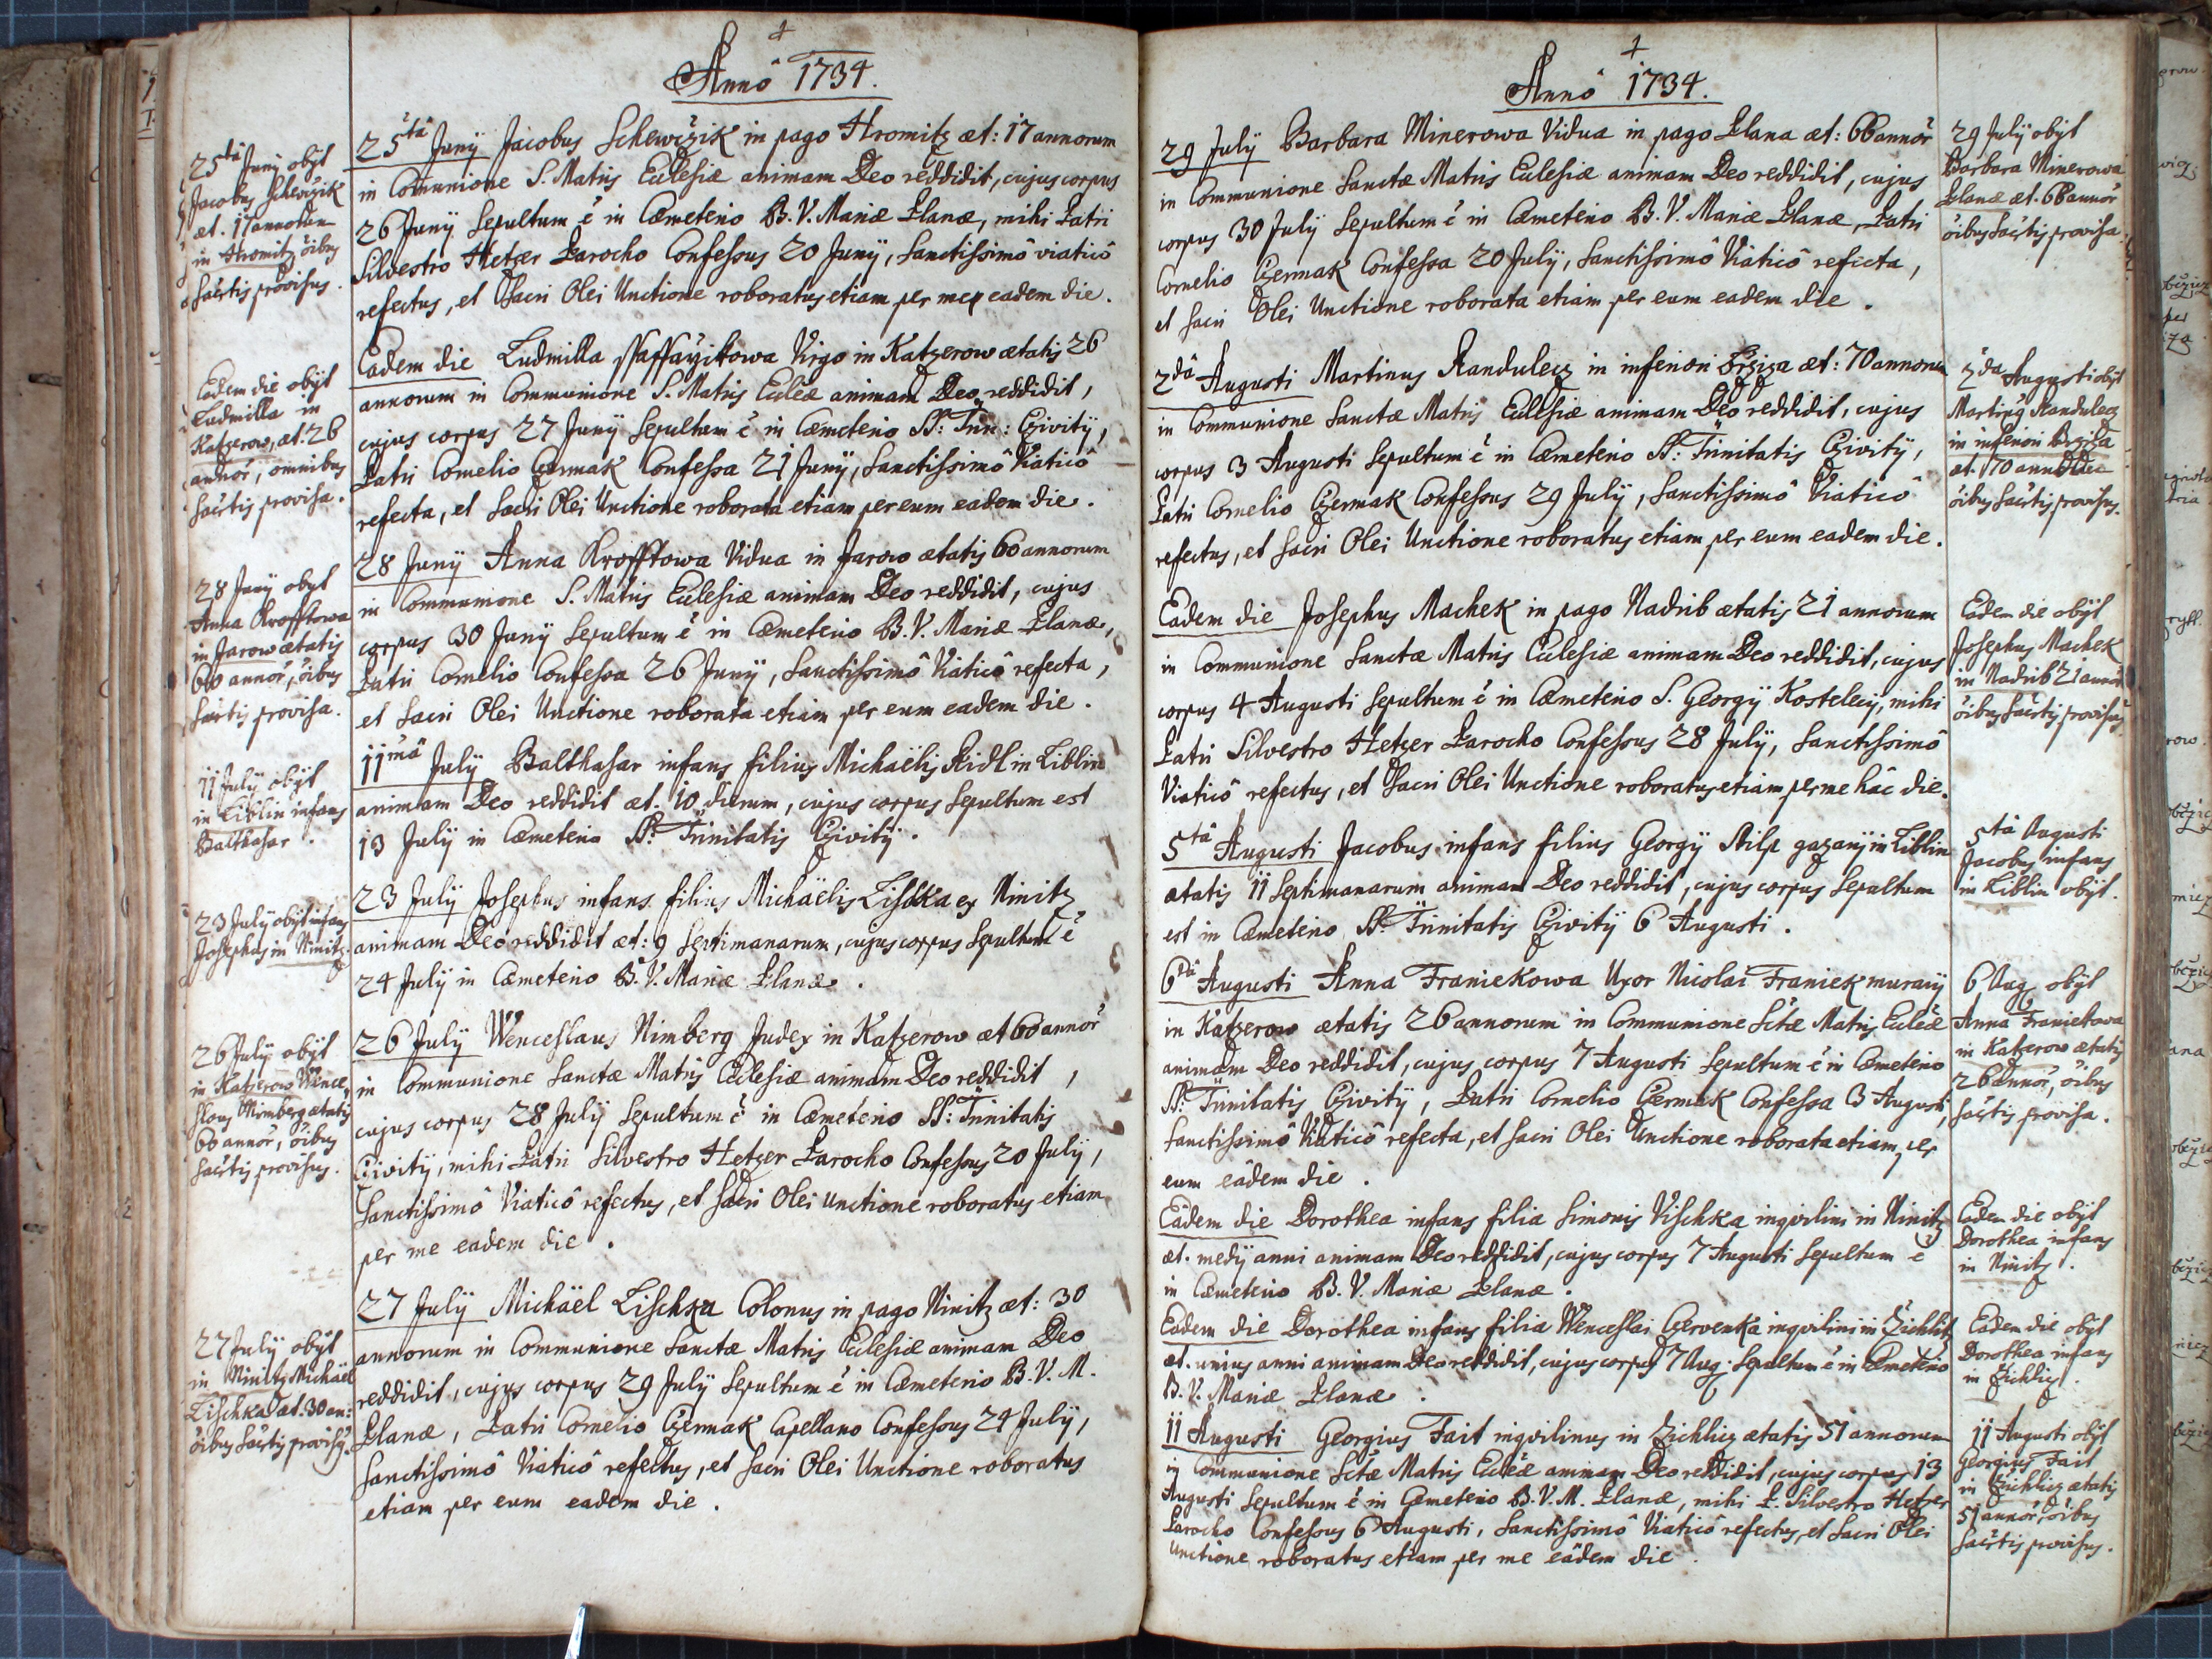 Anno 1734.
25ta Junÿ obÿt
Jacobus Schewczik
æt. 17 annorum
in Hromitz õibus
Sac̃tis provisus.
25ta Junÿ Jacobus Schewczik in pago Hromitz æt: 17 annorum
in Com̃unione S. Matris Ecclesiæ animam Deo reddidit, cujus corpus
26 Junÿ Sepultum ẽ in Cæmeterio B. V. Mariæ Planæ, mihi Patri
Silvestro Hetzer Parocho Confessus 20 Junÿ, Sanctissimô viaticô
refectus, et Sacri Olei Unctione roboratus etiam per me eadem die.
Eadem die obÿt
Ludmilla in
Katzerow, æt: 26
annor̃, omnibus
Sac̃tis provisa.
Eadem die Ludmilla Virgo in Katzerow ætatis 26
annorum in Communione S. Matris Ecclĩæ animam Deo reddidit,
cujus corpus 27 Junÿ Sepultum ẽ in Cæmeterio SS: Trin: Czivitÿ,
Patri Cornelio Czermak Confessa 21 Junÿ, Sanctissimô Viaticô
refecta, et Sacri Olei Unctione roborata etiam per eum eadem die.
28 Junÿ obÿt
Anna Krofftowa
in Jarow ætatis
60 annor̃, õibus
Sac̃tis provisa.
28 Junÿ Anna Krofftowa Vidua in Jarow ætatis 60 annorum
in Communione S. Matris Ecclesiæ animam Deo reddidit, cujus
corpus 30 Junÿ Sepultum ẽ in Cæmeterio B. V. Mariæ Planæ,
Patri Cornelio Confessa 26 Junÿ, Sanctissimô Viaticô refecta,
et Sacri Olei Unctione roborata etiam per eum eadem die.
11 Julÿ obÿt
in Liblin infans
Balthasar.
11ma Julÿ Balthasar infans filius Michaëlis Ridl in Liblin
animam Deo reddidit æt. 10 dierum, cujus corpus Sepultum est
13 Julÿ in Cæmeterio SS: Trinitatis Czivitÿ.
23 Julÿ obÿt infans
Josephus in Ninitz.
23 Julÿ Josephus infans filius Michaëlis Lischka ex Ninitz
animam Deo reddidit æt: 9 Septimanarum, cujus corpus Sepultum ẽ
24 Julÿ in Cæmeterio B. V. Mariæ Planæ.
26 Julÿ obÿt
in Katzerow Wence
slaus Nimberg ætatis
60 annor̃, õibus
Sac̃tis provisus.
26 Julÿ Wenceslaus Nimberg Judex in Katzerow æt 60 annor̃
in Communione Sanctæ Matris Ecclesiæ animam Deo reddidit,
cujus corpus 28 Julÿ Sepultum ẽ in Cæmeterio SS: Trinitatis
Czivitÿ, mihi Patri Silvestro Hetzer Parocho Confessus 20 Julÿ,
Sanctissimô Viaticô refectus, et Sacri Olei unctione roboratus etiam
per me eadem die.
27 Julÿ obÿt
in Ninitz Michaël
Lischka æt. 30 an:
õibus Sac̃tis provisus.
27 Julÿ Michaël Lischka Colonus in pago Ninitz æt: 30
annorum in Communione Sanctæ Matris Ecclesiæ animam Deo
reddidit, cujus corpus 29 Julÿ Sepultum ẽ in Cæmeterio B. V. M.
Planæ, Patri Cornelio Czermak Capellano Confessus 24 Julÿ,
Sanctissimô Viaticô refectus, et Sacri Olei Unctione roboratus
etiam per eum eadem die.
Anno 1734.
29 Julÿ Barbara Minerowa Vidua in pago Plana æt: 66 annor̃
in Communione Sanctæ Matris Ecclesiæ animam Deo reddidit, cujus
corpus 30 Julÿ Sepultum ẽ in Cæmeterio B. V. Mariæ Planæ, Patri
Cornelio Czermak Confessa 20 Julÿ, Sanctissimô Viaticô refecta,
et Sacri Olei Unctione roborata etiam per eum eadem die.
29 Julÿ obÿt
Barbara Minerowa
Planæ æt. 66 annor̃
õibus Sac̃tis provisa.
2da Augusti Martinus Randulecz in inferiori Brziza æt: 70 annorum
in Communione Sanctæ Matris Ecclesiæ animam Deo reddidit, cujus
corpus 3 Augusti Sepultum ẽ in Cæmeterio SS: Trinitatis Czivitÿ,
Patri Cornelio Czermak Confessus 29 Julÿ, Sanctissimô Viaticô
refectus, et Sacri Olei Unctione roboratus etiam per eum eadem die.
2da Augusti obÿt
Martinus Randulecz
in inferiori Brziza
æt. 70
õibus Sac̃tis provisus.
Eadem die Josephus Machek in pago Nadrib ætatis 21 annorum
in Communione Sanctæ Matris Ecclesiæ animam Deo reddidit, cujus
corpus 4 Augusti Sepultum ẽ in Cæmeterio S. Georgÿ Kostelecÿ, mihi
Patri Silvestro Hetzer Parocho Confessus 28 Julÿ, Sanctissimô
Viaticô refectus, et Sacri Olei Unctione roboratus etiam per me hâc die.
Eadem die obÿt
Josephus Machek
in Nadrib 21 annor̃
õibus Sac̃tis provisus
5ta Augusti Jacobus infans filius Georgÿ Stilp in Liblin
ætatis 11 Septimanarum animam Deo reddidit, cujus corpus Sepultum
est in Cæmeterio SS: Trinitatis Czivitÿ 6 Augusti.
5ta Augusti
Jacobus infans
in Liblin obÿt.
6ta Augusti Anna Franiekowa Uxor Nicolai Franiek murarÿ
in Katzerow ætatis 26 annorum in Communione Sc̃tæ Matris Ecclĩæ
animam Deo reddidit, cujus corpus 7 Augusti Sepultum ẽ in Cæmeterio
SS: Trinitatis Czivitÿ, Patri Cornelio Czermak Confessa 3 Augusti,
Sanctissimô Viaticô refecta, et Sacri Olei Unctione roborata etiam per
eum eâdem die.
6 Aug. obÿt
Anna Franiekowa
in Katzerow ætatis
26 annor̃, õibus
Sac̃tis provisa.
Eâdem die Dorothea infans filia Simonis Vischka inqvilini in Ninitz
æt. medÿ anni animam Deo reddidit, cujus corpus 7 Augusti Sepultum ẽ
in Cæmeterio B. V. Mariæ Planæ.
Eadem die obÿt
Dorothea infans
in Ninitz.
Eadem die Dorothea infans filia Wenceslai Czervenka inqvilini in Zichlitz
æt. unius anni animam Deo reddidit, cujus corpus 7 Aug. Sepultum ẽ in Cæmeterio
B. V. Mariæ Planæ.
Eadem die obÿt
Dorothea infans
in Zichlicz.
11 Augusti Georgius Fait inqvilinus in Zichlicz ætatis 51 annorum
in Communione Sc̃tæ Matris Ecclĩæ animam Deo reddidit, cujus corpus 13
Augusti Sepultum ẽ in Cæmeterio B. V. M. Planæ, mihi P. Silvestro Hetzer
Parocho Confessus 6 Augusti, Sanctissimô Viaticô refectus, et Sacri Olei
Unctione roboratus etiam per me eâdem die.
11 Augusti obÿt
Georgius Fait
in Zichlicz ætatis
51 annor̃, õibus
Sac̃tis provisus.